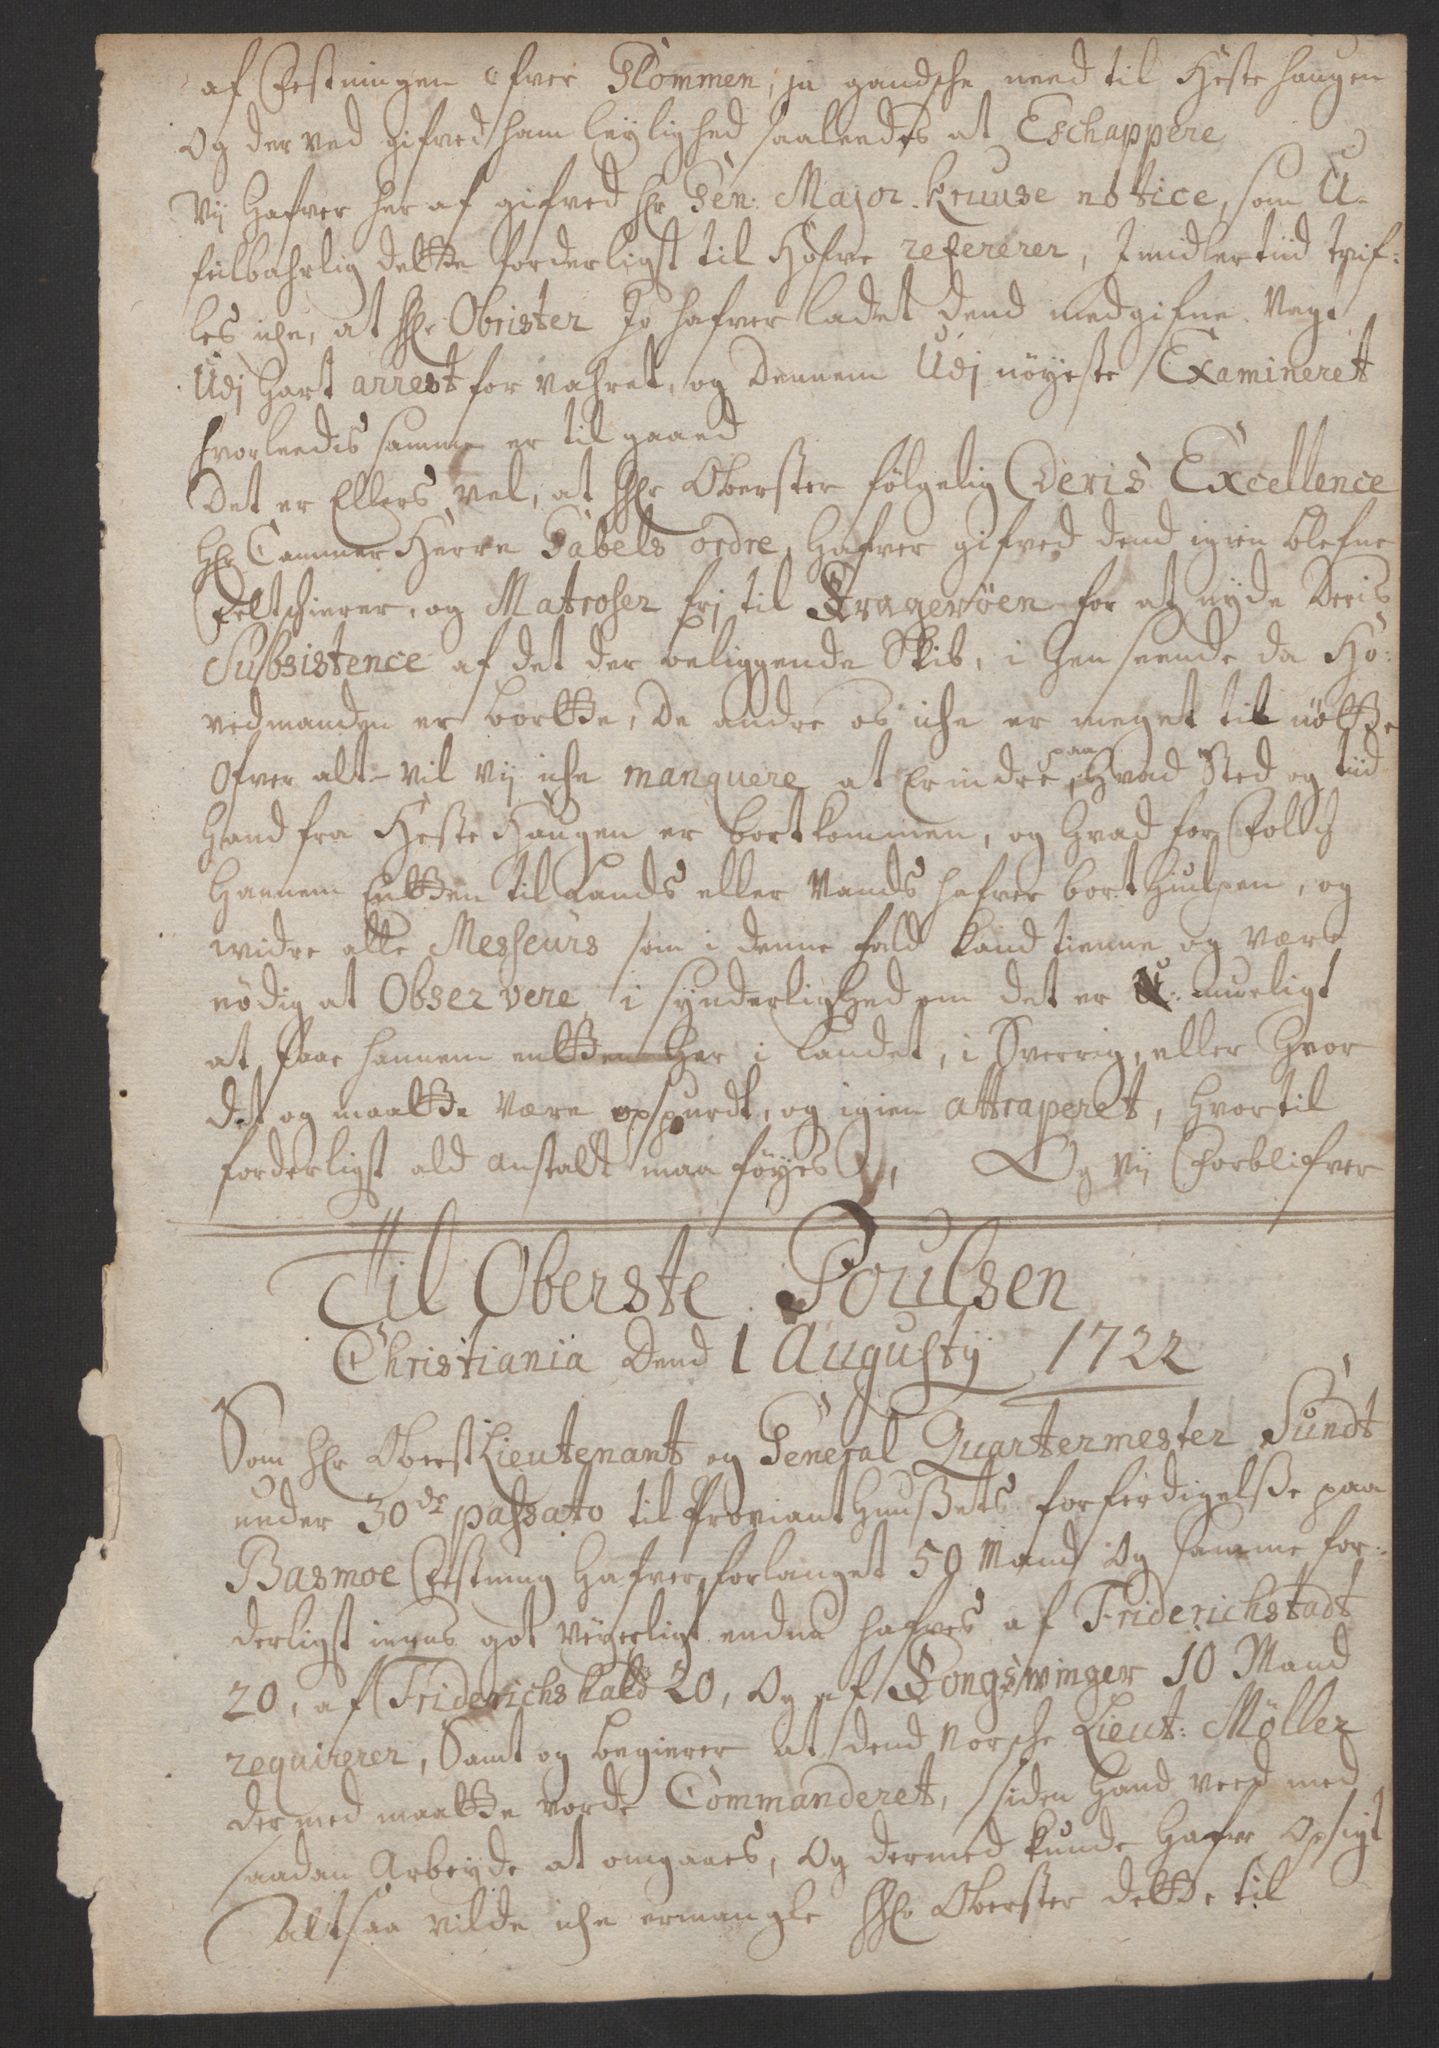 af Festningen ofver Glommen, ja gandsche need til Hestehaugen
og der ved gifved ham leylighed saaleedes at Eschappere
Vij hafver her af gifved Hr Gen: Major Kruuse notice, som U-
feilbahrlig dette forderligst til Hofve refererer, Imidlertiid tvif-
les iche, at Hr Obrister Jo hafver ladet dend medgifne Vagt
Udj hart arrest for vahret, og Dennem Udj nöyeste Examineret
hvorleedis samme er til gaaed
Det er Ellers vel, at Hr Oberster fölgelig Deris Excellence
Hr Cammer Herre Gabels ordre, hafver gifved dend igien blefne
Feltschierer, og Matroser frj til Kragerøen for at nyde Deris
Subsistence af det der beliggende Skib, i henseende da Ho-
vedmanden er bortte, de andre os iche er meget til nøtte
Ofver alt vil vij iche manquere at Erindre, paa hvad Sted og tiid
hand fra Heste Haugen er bortkommen, og hvad for Folch
hannem entten til Lands eller Vands hafver bort hiulpen, og
widre alle Messeurs som i denne fald kand tienne og være
nödig at Observere, i synderlighed om det er U: mueligt
at faae hannem entten her i landet, i Sverrig, eller hvor
det og maatte være opspurdt, og igien attraperet, hvortil
forderligst ald anstalt maa föyes, Og vij Forblifver
Til Oberste Poulsen
Christiania Dend 1 Augustij 1722
Som Hr Oberst Lieutenant og General Quartermester Sundt
under 30de passato til Proviant Huusets forferdigelse paa
Basmoe Festning hafver forlanget 50 Mand og samme for-
derligst got vergerligt endnu hafves af Friderichstadt
20, af Friderichshald 20, Og af Kongswinger 10 Mand
requirerer, Samt og begierer at dend Norsche Lieut: Möller
dermed maatte vorde Commanderet, siden hand veed med
saadan Arbeyde at omgaaes, Og dermed kunde hafve Opsigt
Altsaa vilde iche ermangle Hr Oberster dette til